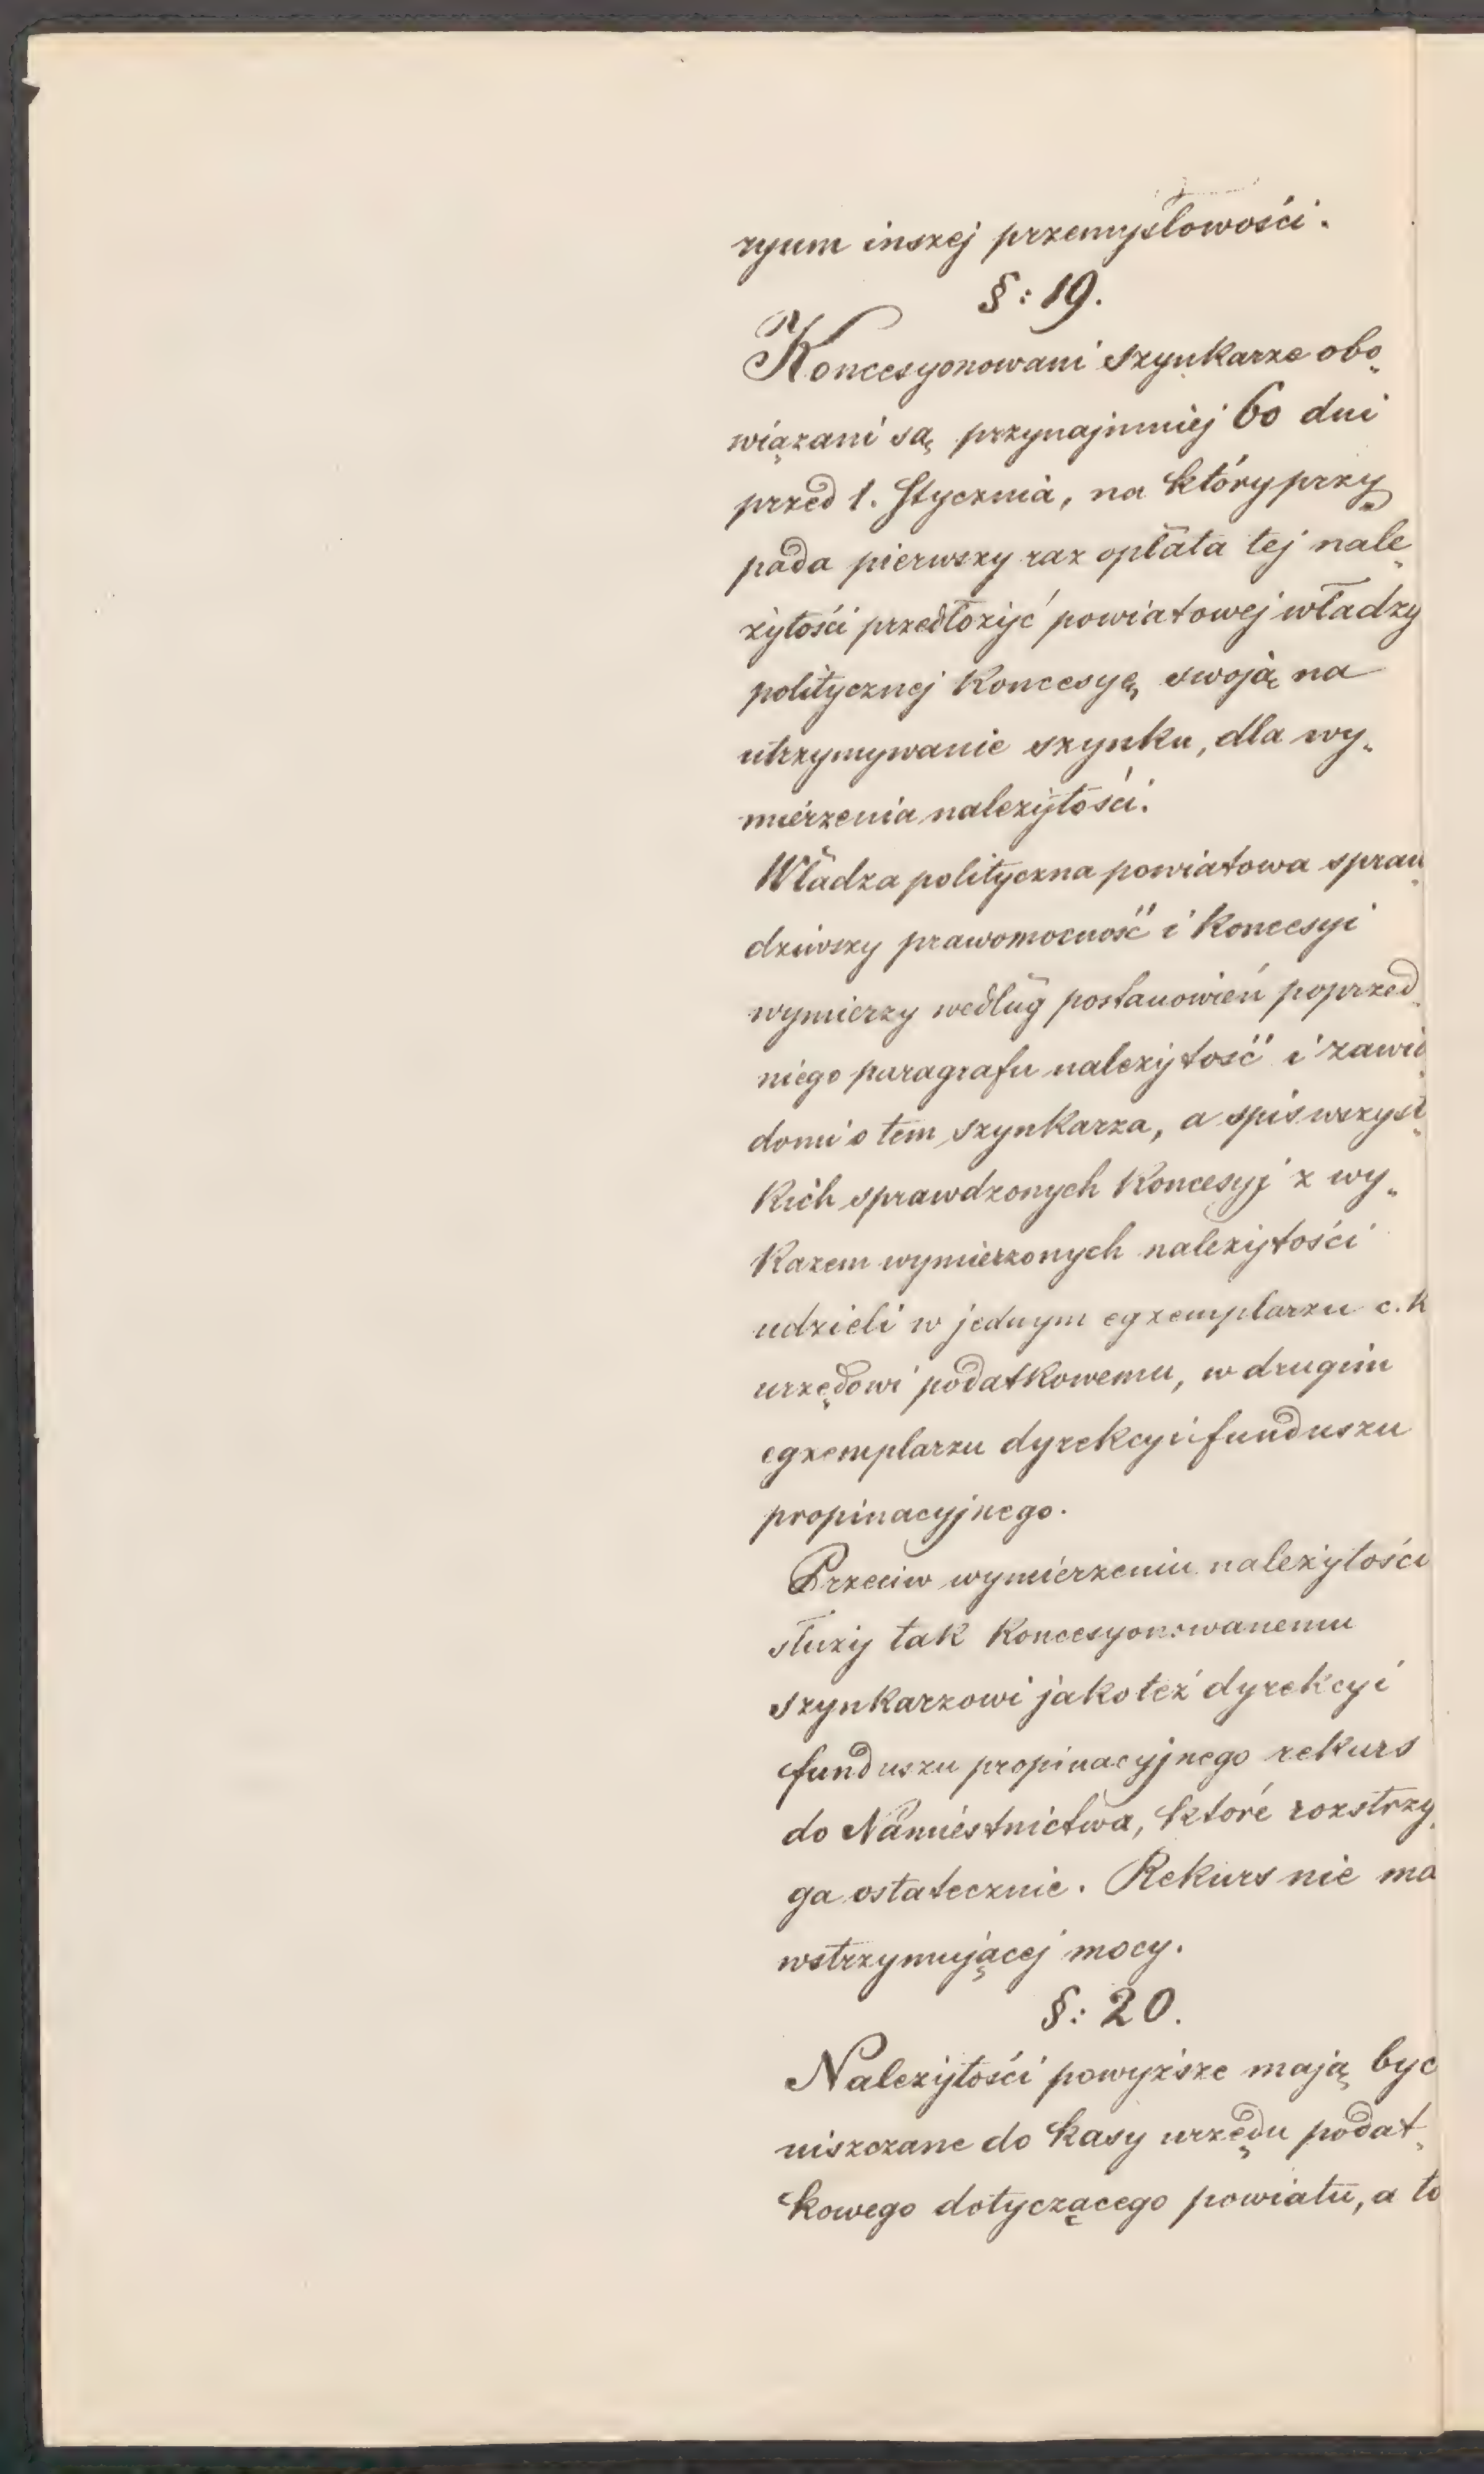 ryum inszej przemysłowości.
§: 19.
Koncesyonowani szynkarze obo„
wiązani są przynajmniej 60 dni
przed 1. Stycznia, na który przy„
pada pierwszy raz opłata tej nale„
żytości przedłożyć powiatowej władzy
politycznej Koncesyę swoją na
utrzymywanie szynku, dla wy„
mierzenia należytości.
Władza polityczna powiatowa spraw„
dziwszy prawomocność i Koncesyi
wymierzy według postanowień poprzed„
niego paragrafu należytość i zawia„
domi o tem szynkarza, a spis wszyst„
kich sprawdzonych Koncesyj z wy„
kazem wymierzonych należytości
udzieli w jednym egzemplarzu c. k
urzędowi podatkowemu, w drugim
egzemplarzu dyrekcyi funduszu
propinacyjnego.
Przeciw wymierzeniu należytości
służy tak Koncesyonowanemu
szynkarzowi jakoteż dyrekcyi
funduszu propinacyjnego rekurs
do Namiestnictwa, które rozstrzy„
ga ostatecznie. Rekurs nie ma
wstrzymującej mocy.
§: 20.
Należytości powyższe mają być
uiszczane do kasy urzędu podat„
kowego dotyczącego powiatu, a to